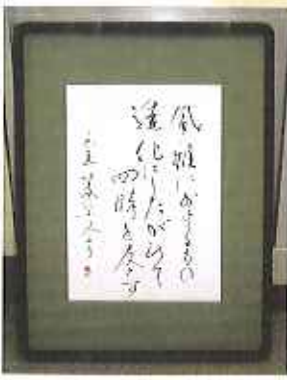 風雅におけるもの
造化にしたがひて
四時を友とす
芭蕉